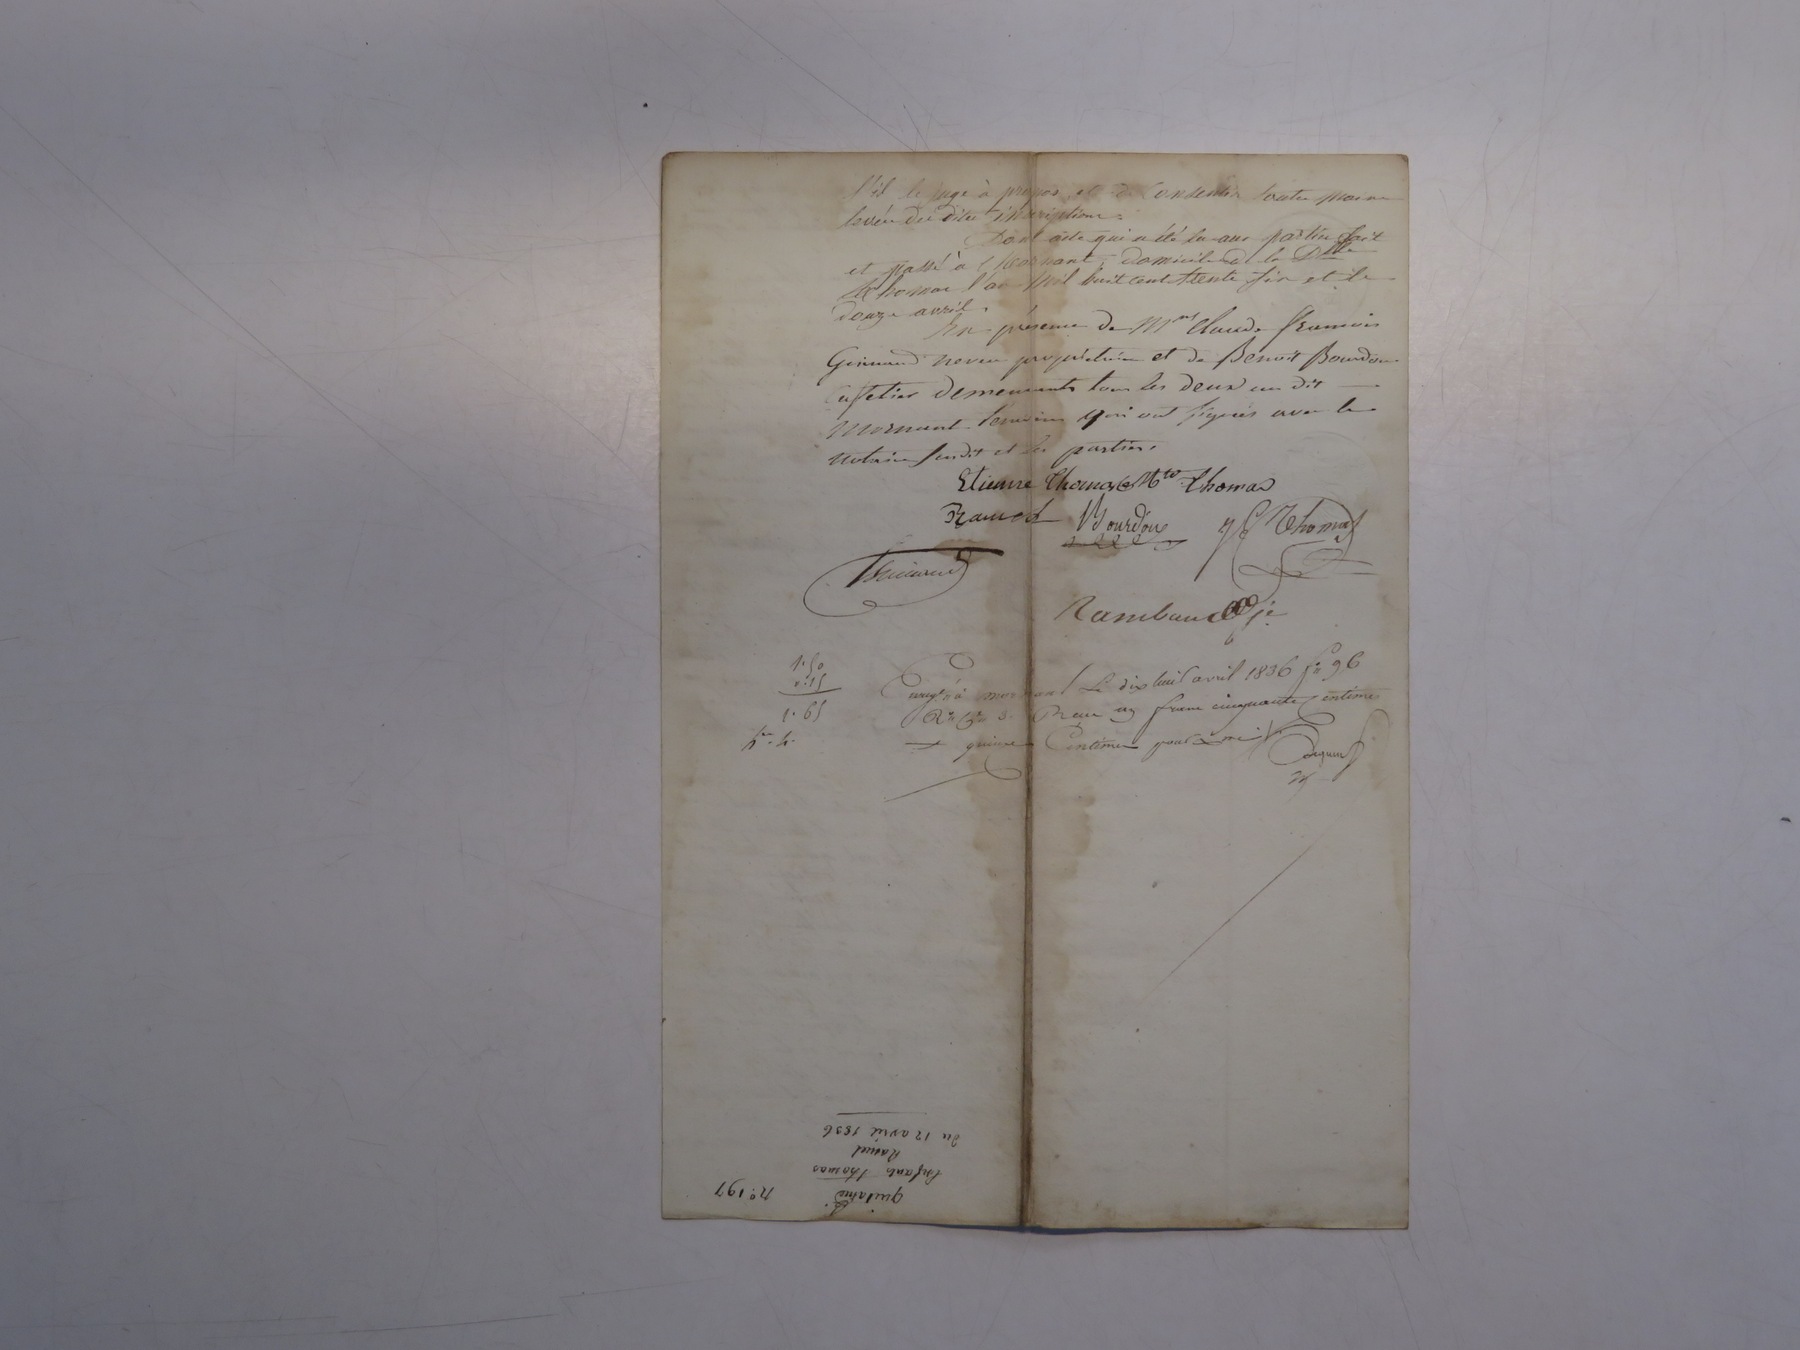 s'il le juge à propos, et de Consentir toutes main
levées des dites inscriptions.
Dont acte qui a été lu aux parties fait
et passé à Mornant, domicile de la Dlle
Thomas l'an Mil huit cent trente six et le
douze avril.
En présence de Mrs Claude François
neveu propriétaire et de Benoit Bourdon
Cafetier demeurants tous les deux au dit
Mornant témoins qui ont signés avec le
notaire susdit et les parties.
Etienne Thomas Mte Thomas
Bourdon Thomas
Rambaud
1.50
.15
1.65
Enregtré à mornant Le dix huit avril 1836 fo 96
Reçu un franc cinquante Centimes
quinze Centimes pour
no. 197
quittance
Enfants Thomas
du 12 avril 1836